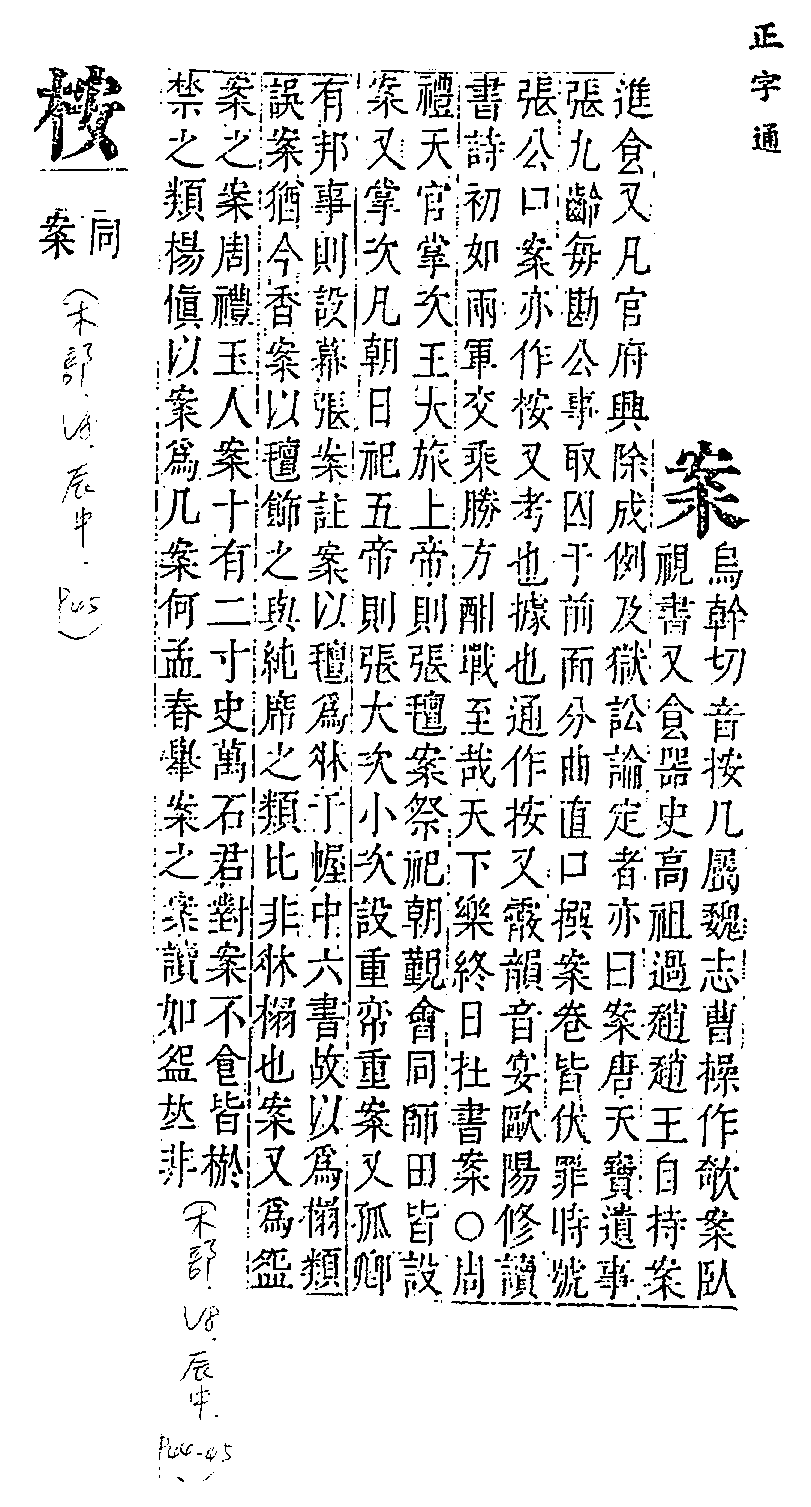 正字通
案
烏幹切音按几屬魏志曹操作欹案臥
視書又食器史高祖過趙趙王自持案
進食又凡官府興除成例及獄訟論定者亦曰案唐天寶遺事
張九齡每勘公事取囚于前面分曲直口撰案卷皆伏罪時號
張公口案亦作桉又考也據也通作按又霰韻音宴歐陽修讀
書詩初如兩軍交乘勝方酣戰至哉天下樂終日在書案○周
禮天官掌次王大旅上帝則張氊案祭祀朝覲會同師田皆設
案又掌次凡朝日祀五帝則張大次小次設重帟重案又孤卿
有邦事則設幕張案註案以氊爲牀于幄中六書故以爲榻類
誤案猶今香案以氊飾之與純席之類比非牀榻也案又爲盌
案之案周禮玉人案十有二寸史萬石君對案不食皆棜
禁之類楊慎以案爲几案何孟春舉案之案讀如盌𠀤非
（木部.V8.辰中.P44-45）
同
案
（木部.V8.辰中.P45）